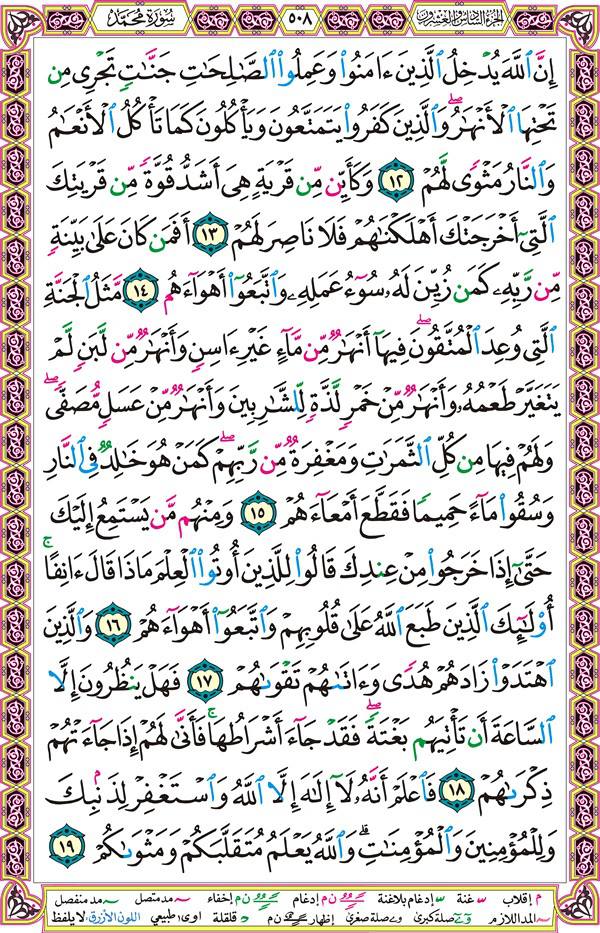 سُورَةُ مُحَمَّد ٥٠٨ الجُزْءُ السَّادِسُ وَالعِشْرُونَ
إِنَّ ٱللَّهَ يُدْخِلُ ٱلَّذِينَ ءَامَنُوا۟ وَعَمِلُوا۟ ٱلصَّـٰلِحَـٰتِ جَنَّـٰتٍ تَجْرِى مِن
تَحْتِهَا ٱلْأَنْهَـٰرُ ۖ وَٱلَّذِينَ كَفَرُوا۟ يَتَمَتَّعُونَ وَيَأْكُلُونَ كَمَا تَأْكُلُ ٱلْأَنْعَـٰمُ
وَٱلنَّارُ مَثْوًى لَّهُمْ ١٢ وَكَأَيِّن مِّن قَرْيَةٍ هِىَ أَشَدُّ قُوَّةً مِّن قَرْيَتِكَ
ٱلَّتِىٓ أَخْرَجَتْكَ أَهْلَكْنَـٰهُمْ فَلَا نَاصِرَ لَهُمْ ١٣ أَفَمَن كَانَ عَلَىٰ بَيِّنَةٍ
مِّن رَّبِّهِۦ كَمَن زُيِّنَ لَهُۥ سُوٓءُ عَمَلِهِۦ وَٱتَّبَعُوٓا۟ أَهْوَآءَهُم ١٤ مَّثَلُ ٱلْجَنَّةِ
ٱلَّتِى وُعِدَ ٱلْمُتَّقُونَ ۖ فِيهَآ أَنْهَـٰرٌ مِّن مَّآءٍ غَيْرِ ءَاسِنٍ وَأَنْهَـٰرٌ مِّن لَّبَنٍ لَّمْ
يَتَغَيَّرْ طَعْمُهُۥ وَأَنْهَـٰرٌ مِّنْ خَمْرٍ لَّذَّةٍ لِّلشَّـٰرِبِينَ وَأَنْهَـٰرٌ مِّنْ عَسَلٍ مُّصَفًّى ۖ
وَلَهُمْ فِيهَا مِن كُلِّ ٱلثَّمَرَٰتِ وَمَغْفِرَةٌ مِّن رَّبِّهِمْ ۖ كَمَنْ هُوَ خَـٰلِدٌ فِى ٱلنَّارِ
وَسُقُوا۟ مَآءً حَمِيمًا فَقَطَّعَ أَمْعَآءَهُمْ ١٥ وَمِنْهُم مَّن يَسْتَمِعُ إِلَيْكَ
حَتَّىٰٓ إِذَا خَرَجُوا۟ مِنْ عِندِكَ قَالُوا۟ لِلَّذِينَ أُوتُوا۟ ٱلْعِلْمَ مَاذَا قَالَ ءَانِفًا ۚ
أُو۟لَـٰٓئِكَ ٱلَّذِينَ طَبَعَ ٱللَّهُ عَلَىٰ قُلُوبِهِمْ وَٱتَّبَعُوٓا۟ أَهْوَآءَهُمْ ١٦ وَٱلَّذِينَ
ٱهْتَدَوْا۟ زَادَهُمْ هُدًى وَءَاتَىٰهُمْ تَقْوَىٰهُمْ ١٧ فَهَلْ يَنظُرُونَ إِلَّا
ٱلسَّاعَةَ أَن تَأْتِيَهُم بَغْتَةً ۖ فَقَدْ جَآءَ أَشْرَاطُهَا ۚ فَأَنَّىٰ لَهُمْ إِذَا جَآءَتْهُمْ
ذِكْرَىٰهُمْ ١٨ فَٱعْلَمْ أَنَّهُۥ لَآ إِلَـٰهَ إِلَّا ٱللَّهُ وَٱسْتَغْفِرْ لِذَنۢبِكَ
وَلِلْمُؤْمِنِينَ وَٱلْمُؤْمِنَـٰتِ ۗ وَٱللَّهُ يَعْلَمُ مُتَقَلَّبَكُمْ وَمَثْوَىٰكُمْ ١٩
م إقلاب غنة إدغام بلاغنة ن م إدغام ن م إخفاء مد متصل مد منفصل
المد اللازم صلة كبرى صلة صغرى إظهار ن م قلقلة اوى طبيعي اللون الأزرق لا يلفظ